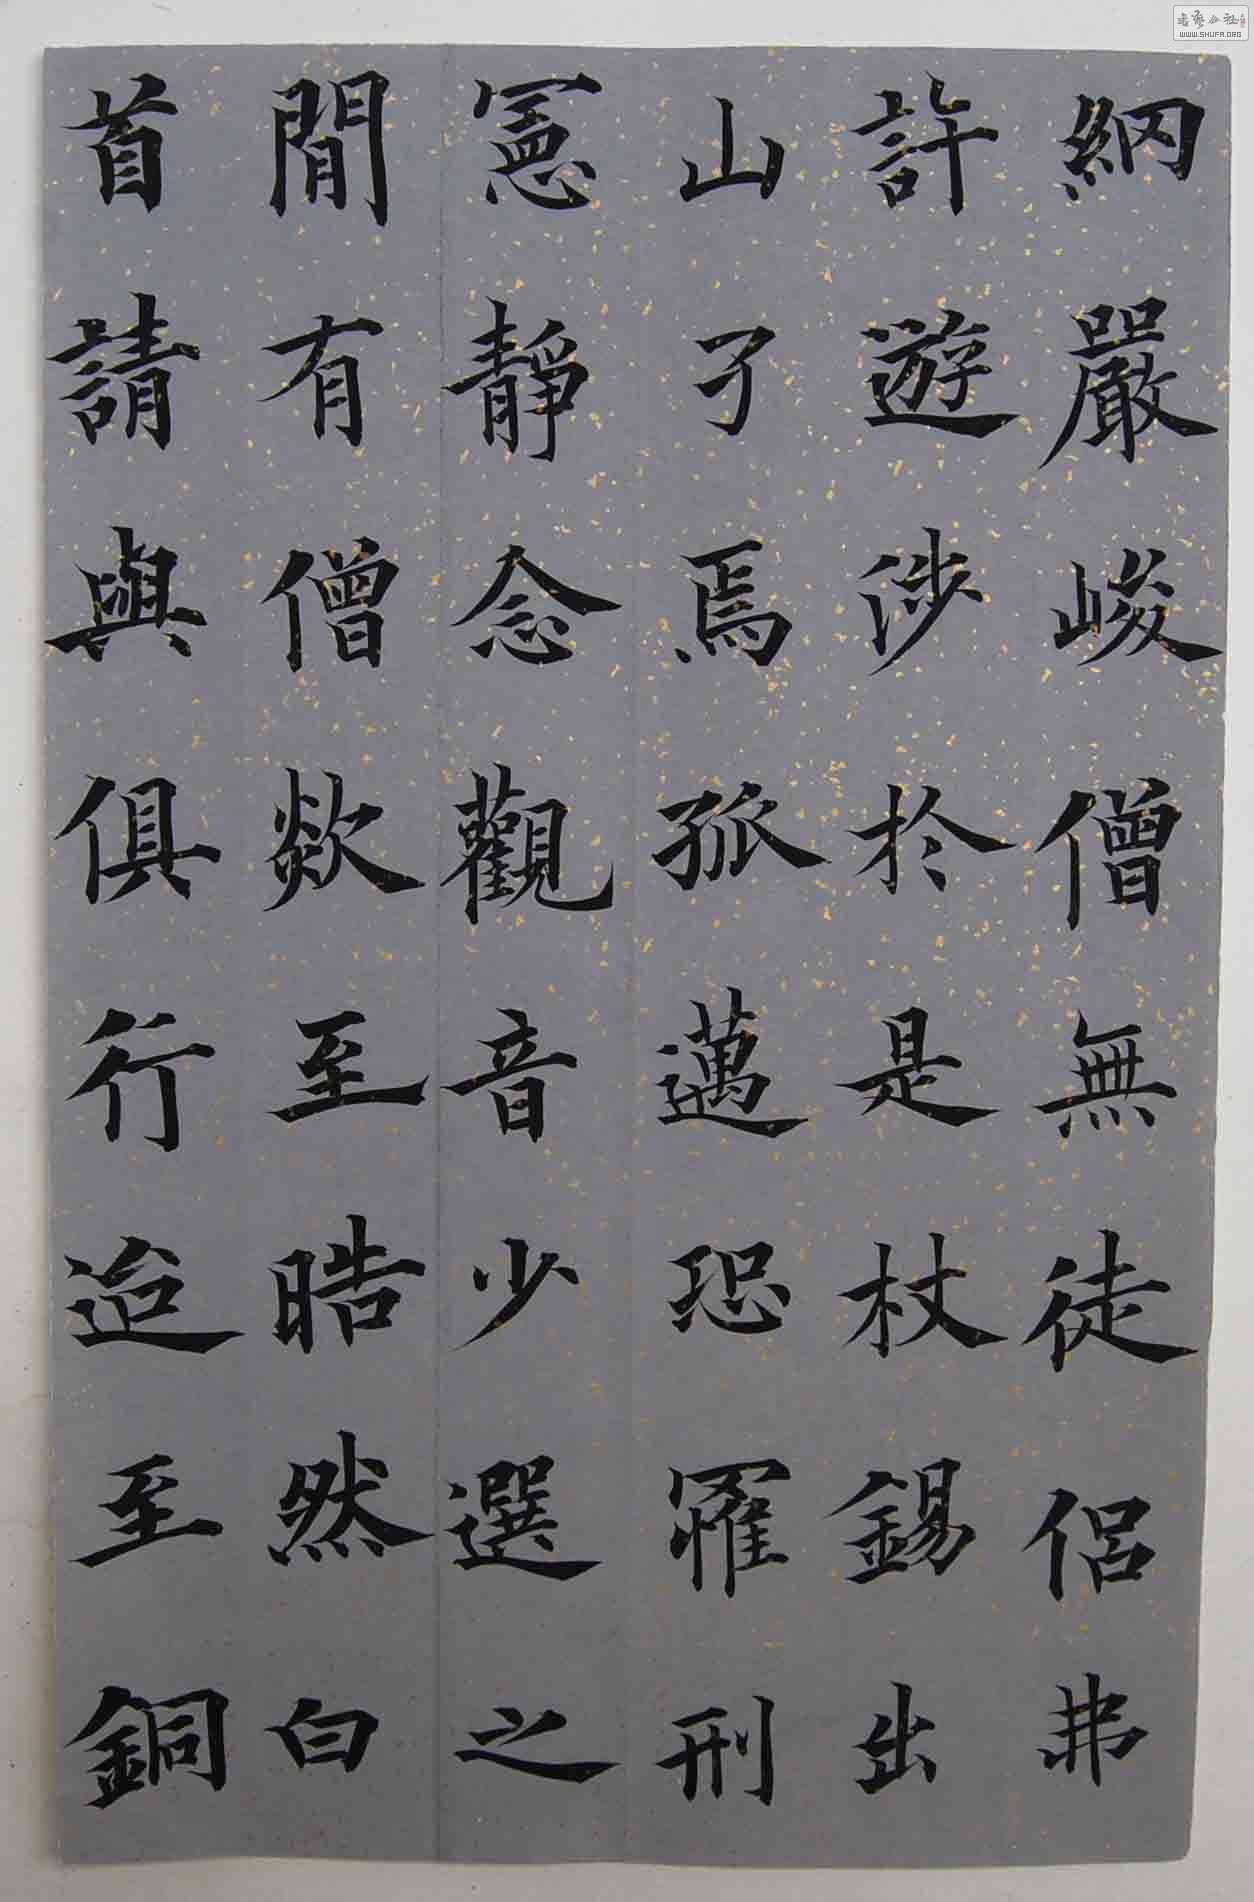 網嚴峻僧無徒侶弗
許遊涉於是杖錫出
山了焉孤邁恐罹刑
憲靜念觀音少選之
閒有僧欻至晧然白
首請與俱行迨至銅
書藝公社
WWW.SHUFA.ORG